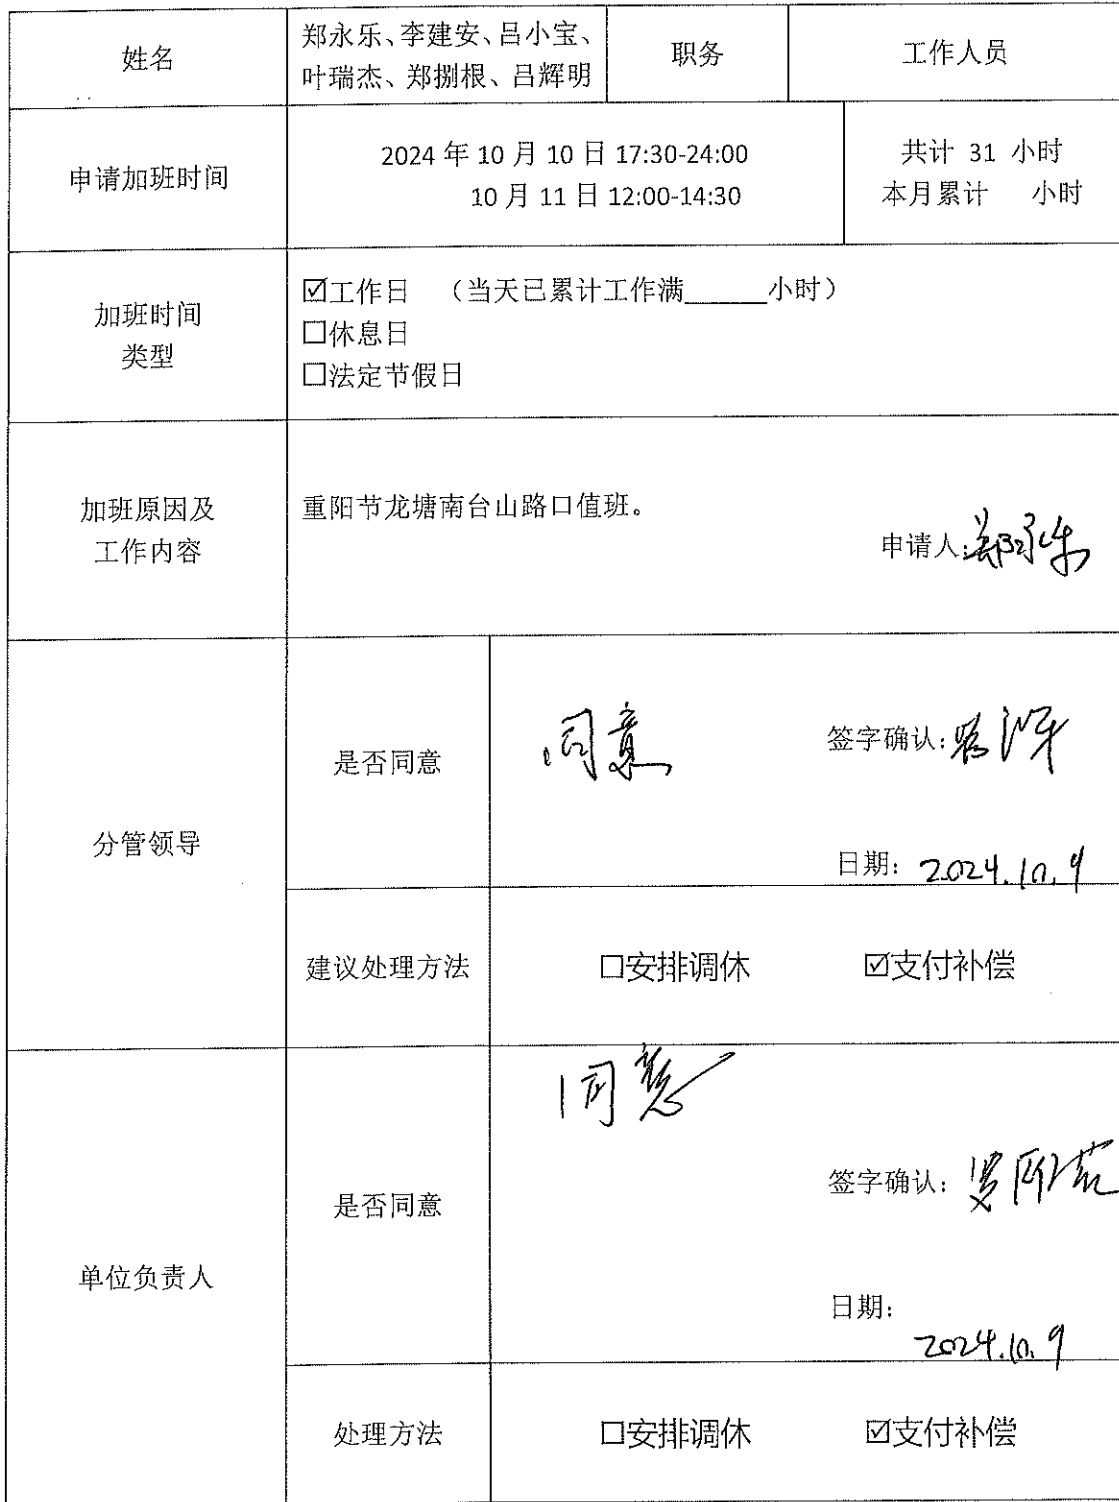 姓名
郑永乐、李建安、吕小宝、
叶瑞杰、郑捌根、吕辉明
职务
工作人员
申请加班时间
2024 年 10 月 10 日 17:30-24:00
10 月 11 日 12:00-14:30
共计 31 小时
本月累计 小时
加班时间
类型
☑工作日 （当天已累计工作满______小时）
☐休息日
☐法定节假日
加班原因及
工作内容
重阳节龙塘南台山路口值班。
申请人:郑永乐
分管领导
是否同意
同意
签字确认:
日期: 2024.10.9
建议处理方法
☐安排调休 ☑支付补偿
单位负责人
是否同意
同意
签字确认:
日期:
2024.10.9
处理方法
☐安排调休 ☑支付补偿